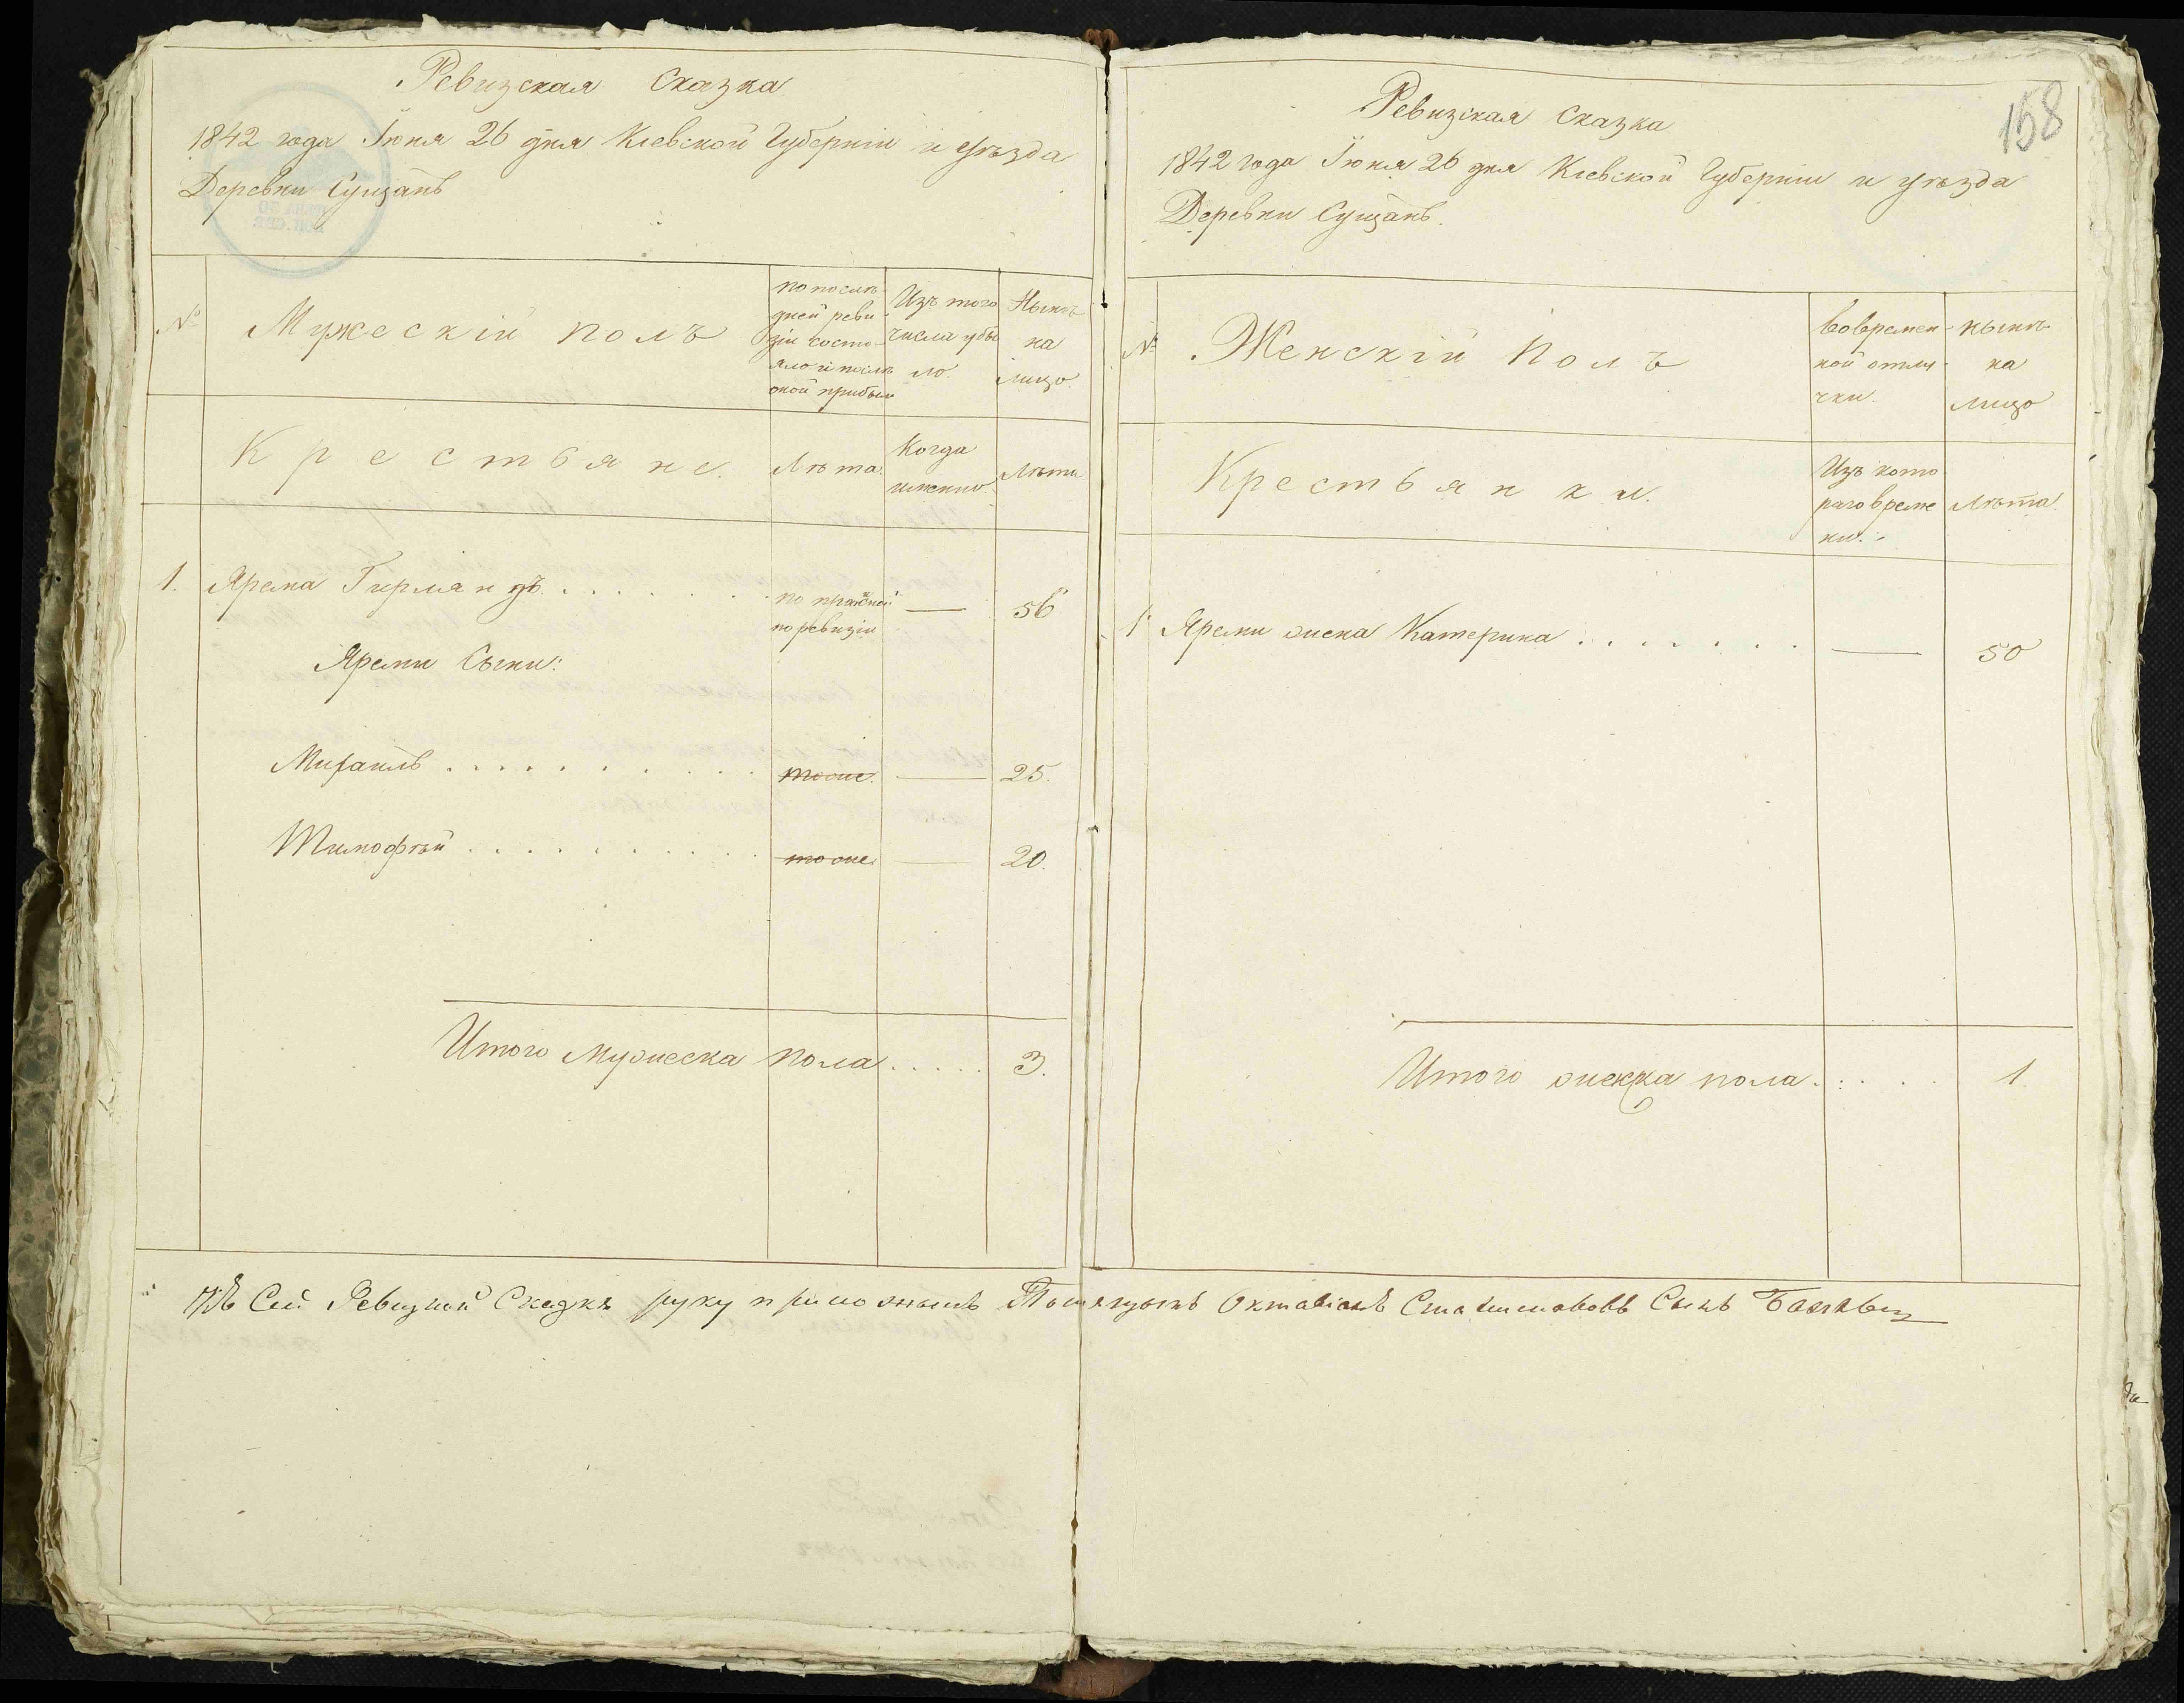 Ревизская Сказка
1842 года Іюня 26 дня Кіевской Губерніи и уѣзда
Деревни Сущанъ
№
Мужескій полъ
по послѣ-
дней реви
зіи состо-
яло и послѣ
оной прибыло
Изъ того
числа убы
ло.
Нынѣ
на
лицо.
Крестьяне.
Лѣта.
Когда
именно.
Лѣта
1. Ярема Гирман . . . . . . . .
по
по ревизіи
—
56
Яремы Сыны:
Михаилъ . . . . . . . . . . .
тоже.
—
25.
Тимофѣй . . . . . . . . . . .
тоже.
—
20.
Итого Мужеска пола . . . . . 3.
158
Ревизская Сказка
1842 года Іюня 26 дня Кіевской Губерніи и уѣзда
Деревни Сущанъ.
№
Женскій Полъ
Во времен-
ной отлу-
чки.
нынѣ
на
лицо
Крестьянки.
Изъ кото
раго време
ни.
Лѣта.
1 Яремы жена Катерина . . . . . . .
—
50
Итого женска пола . . . . . 1.
Къ Сей Ревизкой Сказкѣ руку приложилъ Октавіанъ Сынъ